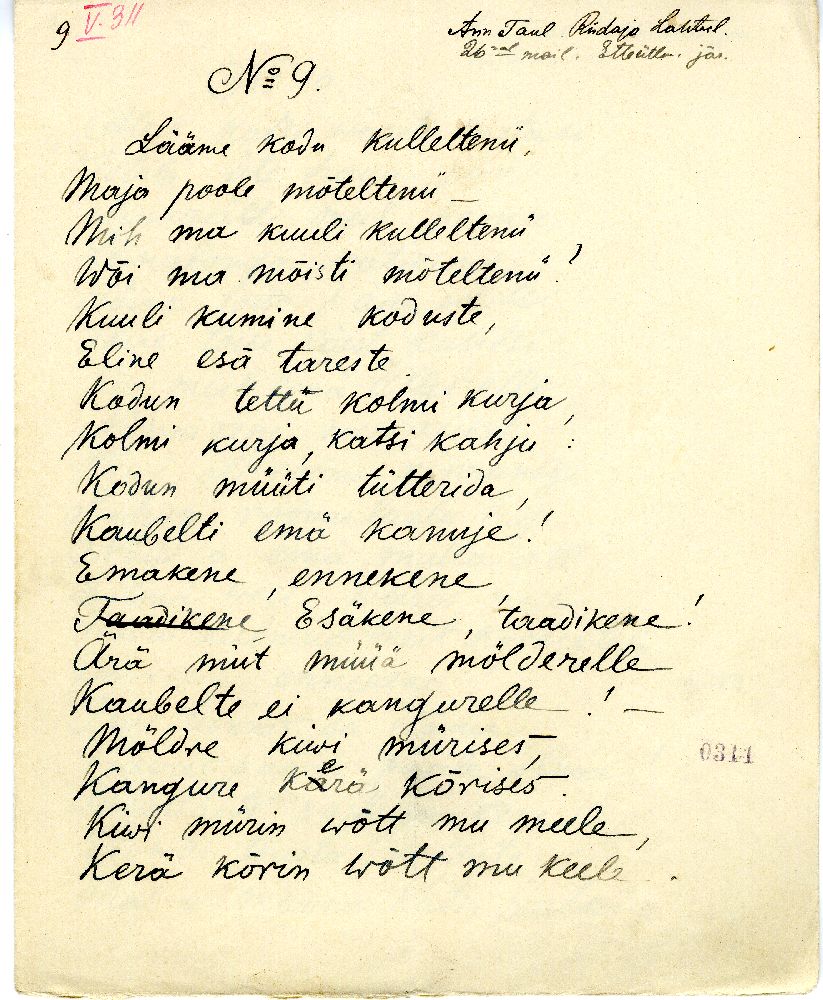 9 V. 311
Ann Taul. Riidaja
26 mail.
№ 9.
Lääme kodu kulleltenü,
Maja poole mõteltenü —
Mih ma kuuli kulleltenü,
Wõi ma mõisti mõteltenü!
Kuuli kumine koduste,
Eline esä tareste
Kodun tettü kolmi kurja,
Kolmi kurja, katsi kahju:
Kodun müüti tütterida,
Kaubelti emä kanuje!
Emakene, ennekene,
Taadikene, Esäkene, taadikene!
Ärä miut müüä mölderelle
Kaubelte ei kangurelle! —
Möldre kiwi mürises,
Kangure kerä kõrises.
Kiwi mürin wõtt mu meele,
Kerä kõrin wõtt mu keele.
0311